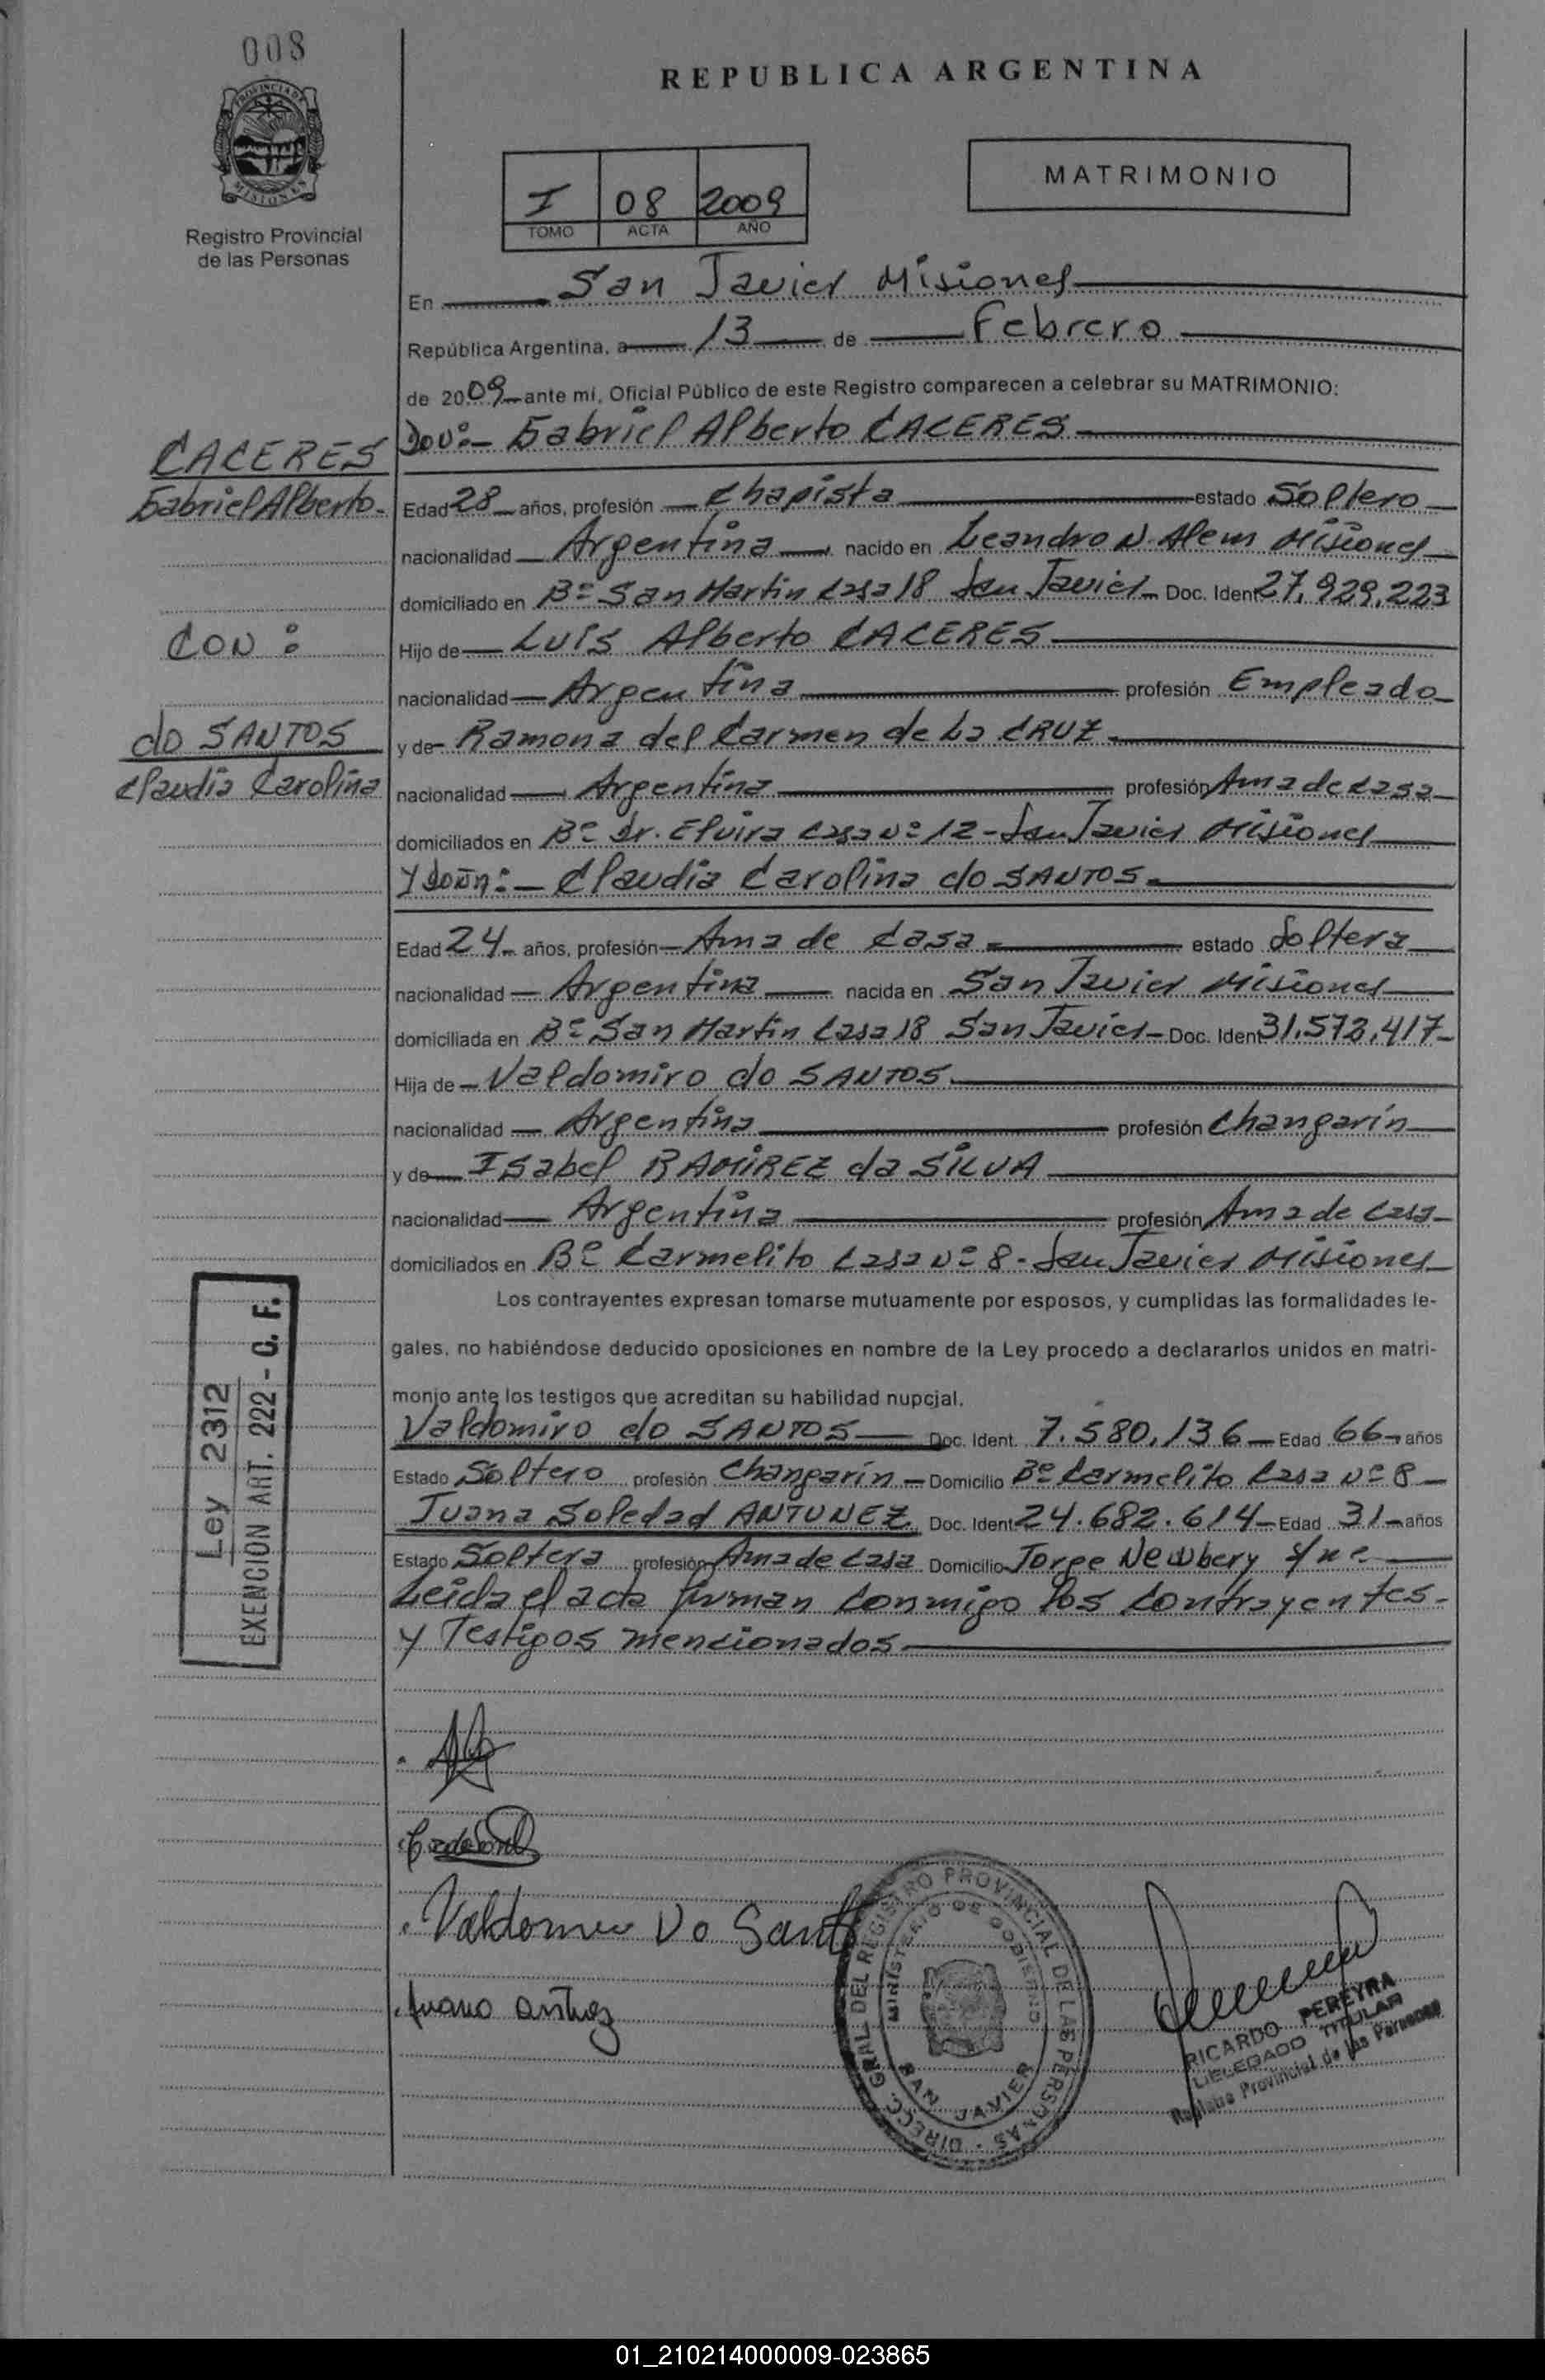 008
REPUBLICA ARGENTINA
PROVINCIA DE
MISIONES
Registro Provincial
de las Personas
I 08 2009
TOMO ACTA AÑO
MATRIMONIO
En San Javier Misiones
República Argentina, a 13 de Febrero
de 2009 ante mi, Oficial Público de este Registro comparecen a celebrar su MATRIMONIO:
CACERES
Gabriel Alberto
Don:- Gabriel Alberto CACERES
Edad 28 años, profesión Chapista estado Soltero
nacionalidad Argentina nacido en Leandro N. Alem Misiones
domiciliado en Bº San Martin Casa 18 San Javier Doc. Ident 27.929.223
CON:
Hijo de LUIS Alberto CACERES
nacionalidad Argentina profesión Empleado
do SANTOS
Claudia Carolina
y de Ramona del Carmen de La CRUZ
nacionalidad Argentina profesión Ama de casa
domiciliados en Bº Dr. Elvira casa Nº 12 - San Javier Misiones
Y doña:- Claudia Carolina do SANTOS
Edad 24 años, profesión Ama de Casa estado Soltera
nacionalidad Argentina nacida en San Javier Misiones
domiciliada en Bº San Martin Casa 18 San Javier Doc. Ident 31.572.417
Hija de Valdomiro do SANTOS
nacionalidad Argentina profesión Changarín
y de Isabel RAMIREZ da SILVA
nacionalidad Argentina profesión Ama de Casa
domiciliados en Bº Carmelito Casa Nº 8 - San Javier Misiones
Los contrayentes expresan tomarse mutuamente por esposos, y cumplidas las formalidades le-
gales, no habiéndose deducido oposiciones en nombre de la Ley procedo a declararlos unidos en matri-
monio ante los testigos que acreditan su habilidad nupcial.
Ley 2312
EXENCION ART. 222 - G. F.
Valdomiro do SANTOS Doc. Ident. 7.580.136 Edad 66 años
Estado Soltero profesión Changarín Domicilio Bº Carmelito Casa Nº 8
Juana Soledad ANTUNEZ Doc. Ident 24.682.614 Edad 31 años
Estado Soltera profesión Ama de Casa Domicilio Jorge Newbery s/nº
Leída el acta firman conmigo los contrayentes
y Testigos mencionados
Valdomiro Do Santo
DIRECC. GRAL. DEL REGISTRO PROVINCIAL DE LAS PERSONAS
MINISTERIO DE GOBIERNO
SAN JAVIER
RICARDO PEREYRA
DELEGADO TITULAR
Registro Provincial de las Personas
01_210214000009-023865